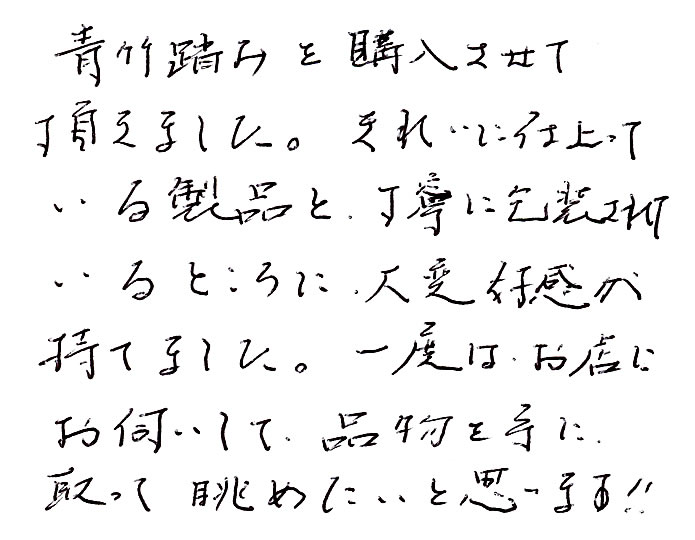 青竹踏みを購入させて
頂えました。きれいに仕上って
いる製品と、丁寧に包装されて
いるところに、大変好感が
持てました。一度は、お店に
お伺いして、品物を手に、
取って眺めたいと思います!!